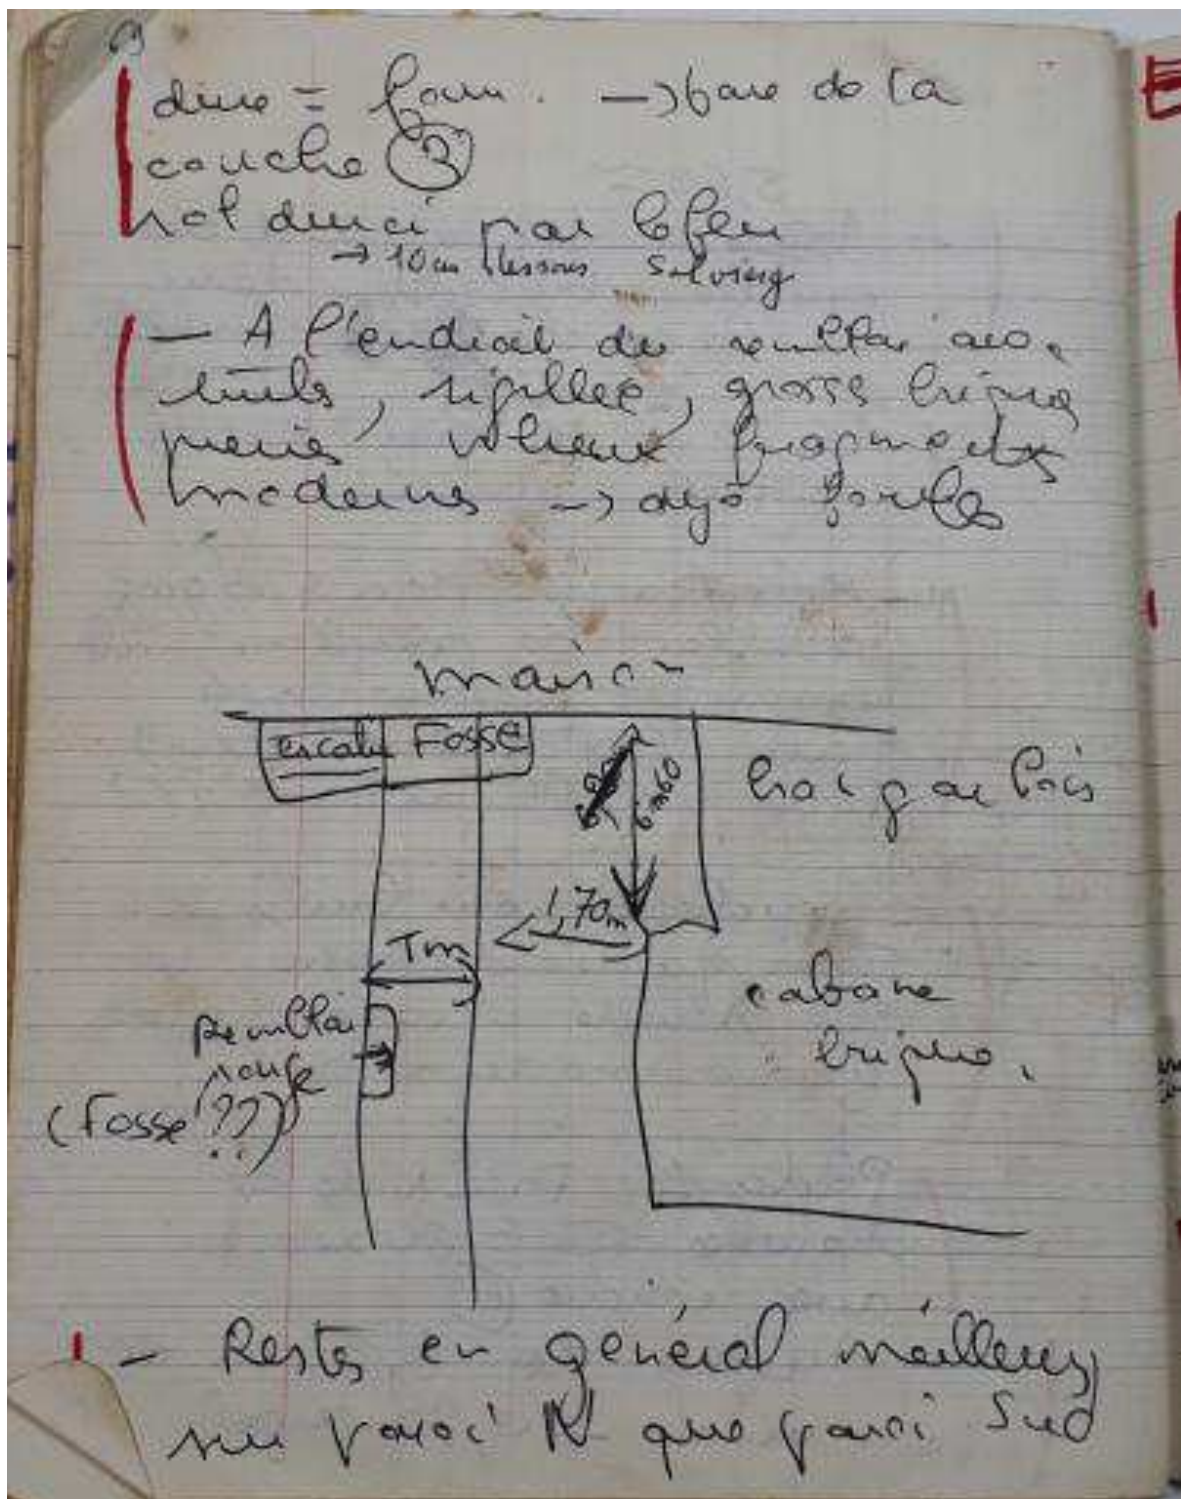 dure = four. → base de la
couche ③
sol durci par le feu
→ 10 cm dessous
- A l'endroit du remblai avec
tuiles, sigillée, grosse brique
fragments
modernes → déjà
maison
escalier Fosse
6m60
hangar bois
1,70m
1m
cabane
brique.
Remblai
rouge
(Fosse ??)
- Restes en général meilleurs
sur paroi N que paroi Sud